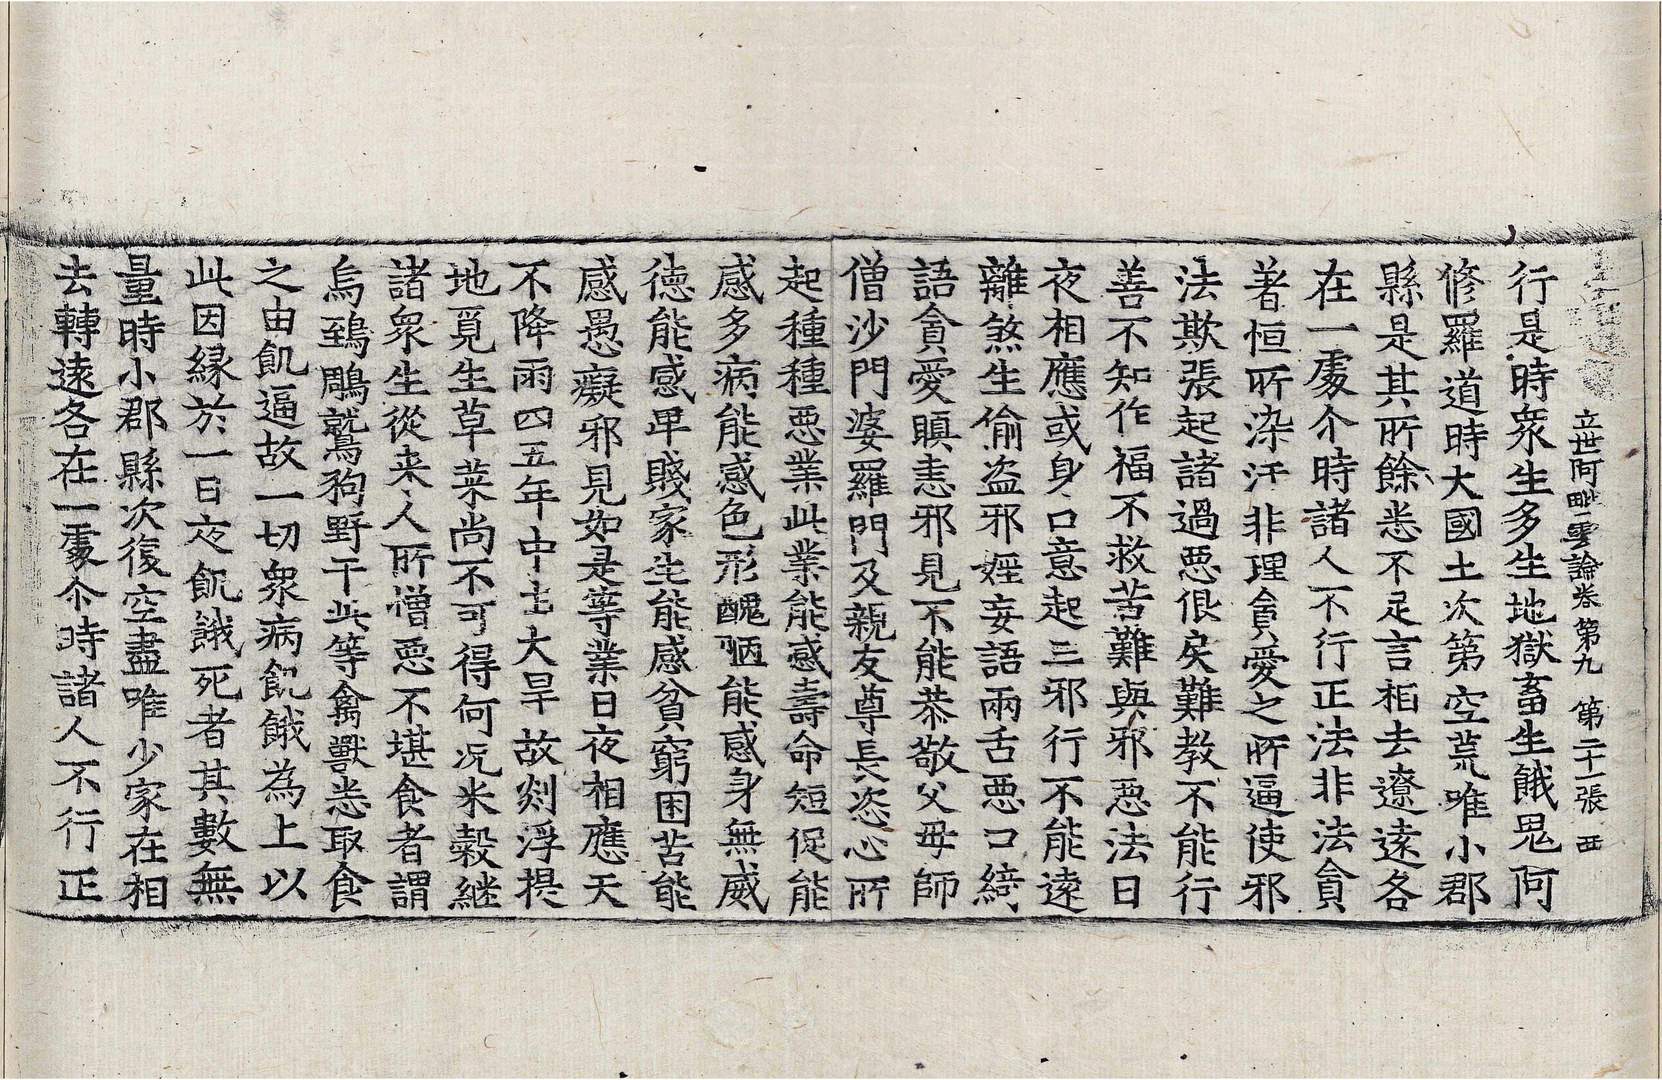 立世阿毗曇論卷第九　第二十一張　西
行是時眾生多生地獄畜生餓鬼阿
修羅道時大國土次第空荒唯小郡
縣是其所餘悉不足言相去遼遠各
在一處尒時諸人不行正法非法貪
著恒所染汙非理貪愛之所逼使邪
法欺張起諸過惡佷戾難教不能行
善不知作福不救苦難與邪惡法日
夜相應或身口意起三邪行不能遠
離煞生偷盜邪婬妄語兩舌惡口綺
語貪愛瞋恚邪見不能恭敬父母師
僧沙門婆羅門及親友尊長恣心所
起種種惡業此業能感壽命短促能
感多病能感色形醜陋能感身無威
德能感卑賤家生能感貧窮困苦能
感愚癡邪見如是等業日夜相應天
不降雨四五年中由大旱故剡浮提
地覓生草菜尚不可得何況米穀継
諸眾生從来人所憎惡不堪食者謂
烏鵄鵰鷲狗野干此等禽獸悉取食
之由飢逼故一切眾病飢餓為上以
此因縁於一日夜飢餓死者其數無
量時小郡縣次復空盡唯少家在相
去轉遠各在一處尒時諸人不行正